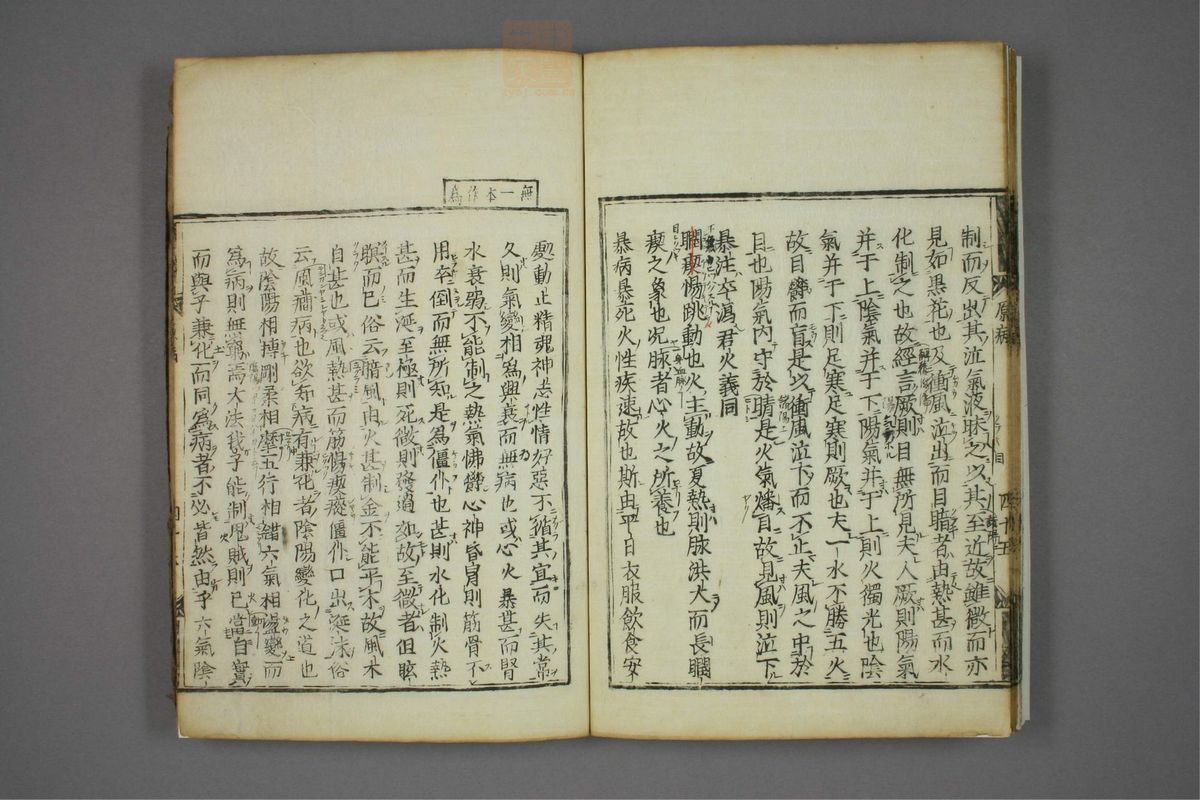 制而反出其泣氣液眯之以其至近故雖微而亦
見如黑花也及衝風泣出而目暗者由熱甚而水
化制之也故經言厥則目無所見夫人厥則陽氣
并于上陰氣并于下陽氣并于上則火獨光也陰
氣并于下則足寒足寒則厥也夫一水不勝五火
故目皆而盲是以衝風泣下而不止夫風之中於
目也陽氣內守於睛是火氣燔目故見風則泣下
暴注卒瀉君火義同
瞤瘈惕跳動也火主動故夏熱則脉洪大而長瞤
瘈之象也况脉者心火之所養也
暴病暴死火性疾速故也斯由平日衣服飲食安
原病
四十五
無一本作爲
處動止精魂神志性情好惡不循其宜而失其常
久則氣變相爲興衰而無病也或心火暴甚而腎
水衰弱不能制之熱氣怫鬱心神昏冒則筋骨不
用卒倒而無所知是爲僵仆也甚則水化制火熱
甚而生涎至極則死微則發過如故至微者但眩
瞑而已俗云暗風由火甚制金不能平木故風木
自甚也或風熱甚而筋惕瘈瘲僵仆口出涎沫俗
云風癎病也欲知病有兼化者陰陽變化之道也
故陰陽相搏剛柔相摩五行相錯六氣相盪變而
爲病則無窮焉大法我子能制鬼賊則已當自實
而與子兼化而同爲病者不必皆然由乎六氣陰